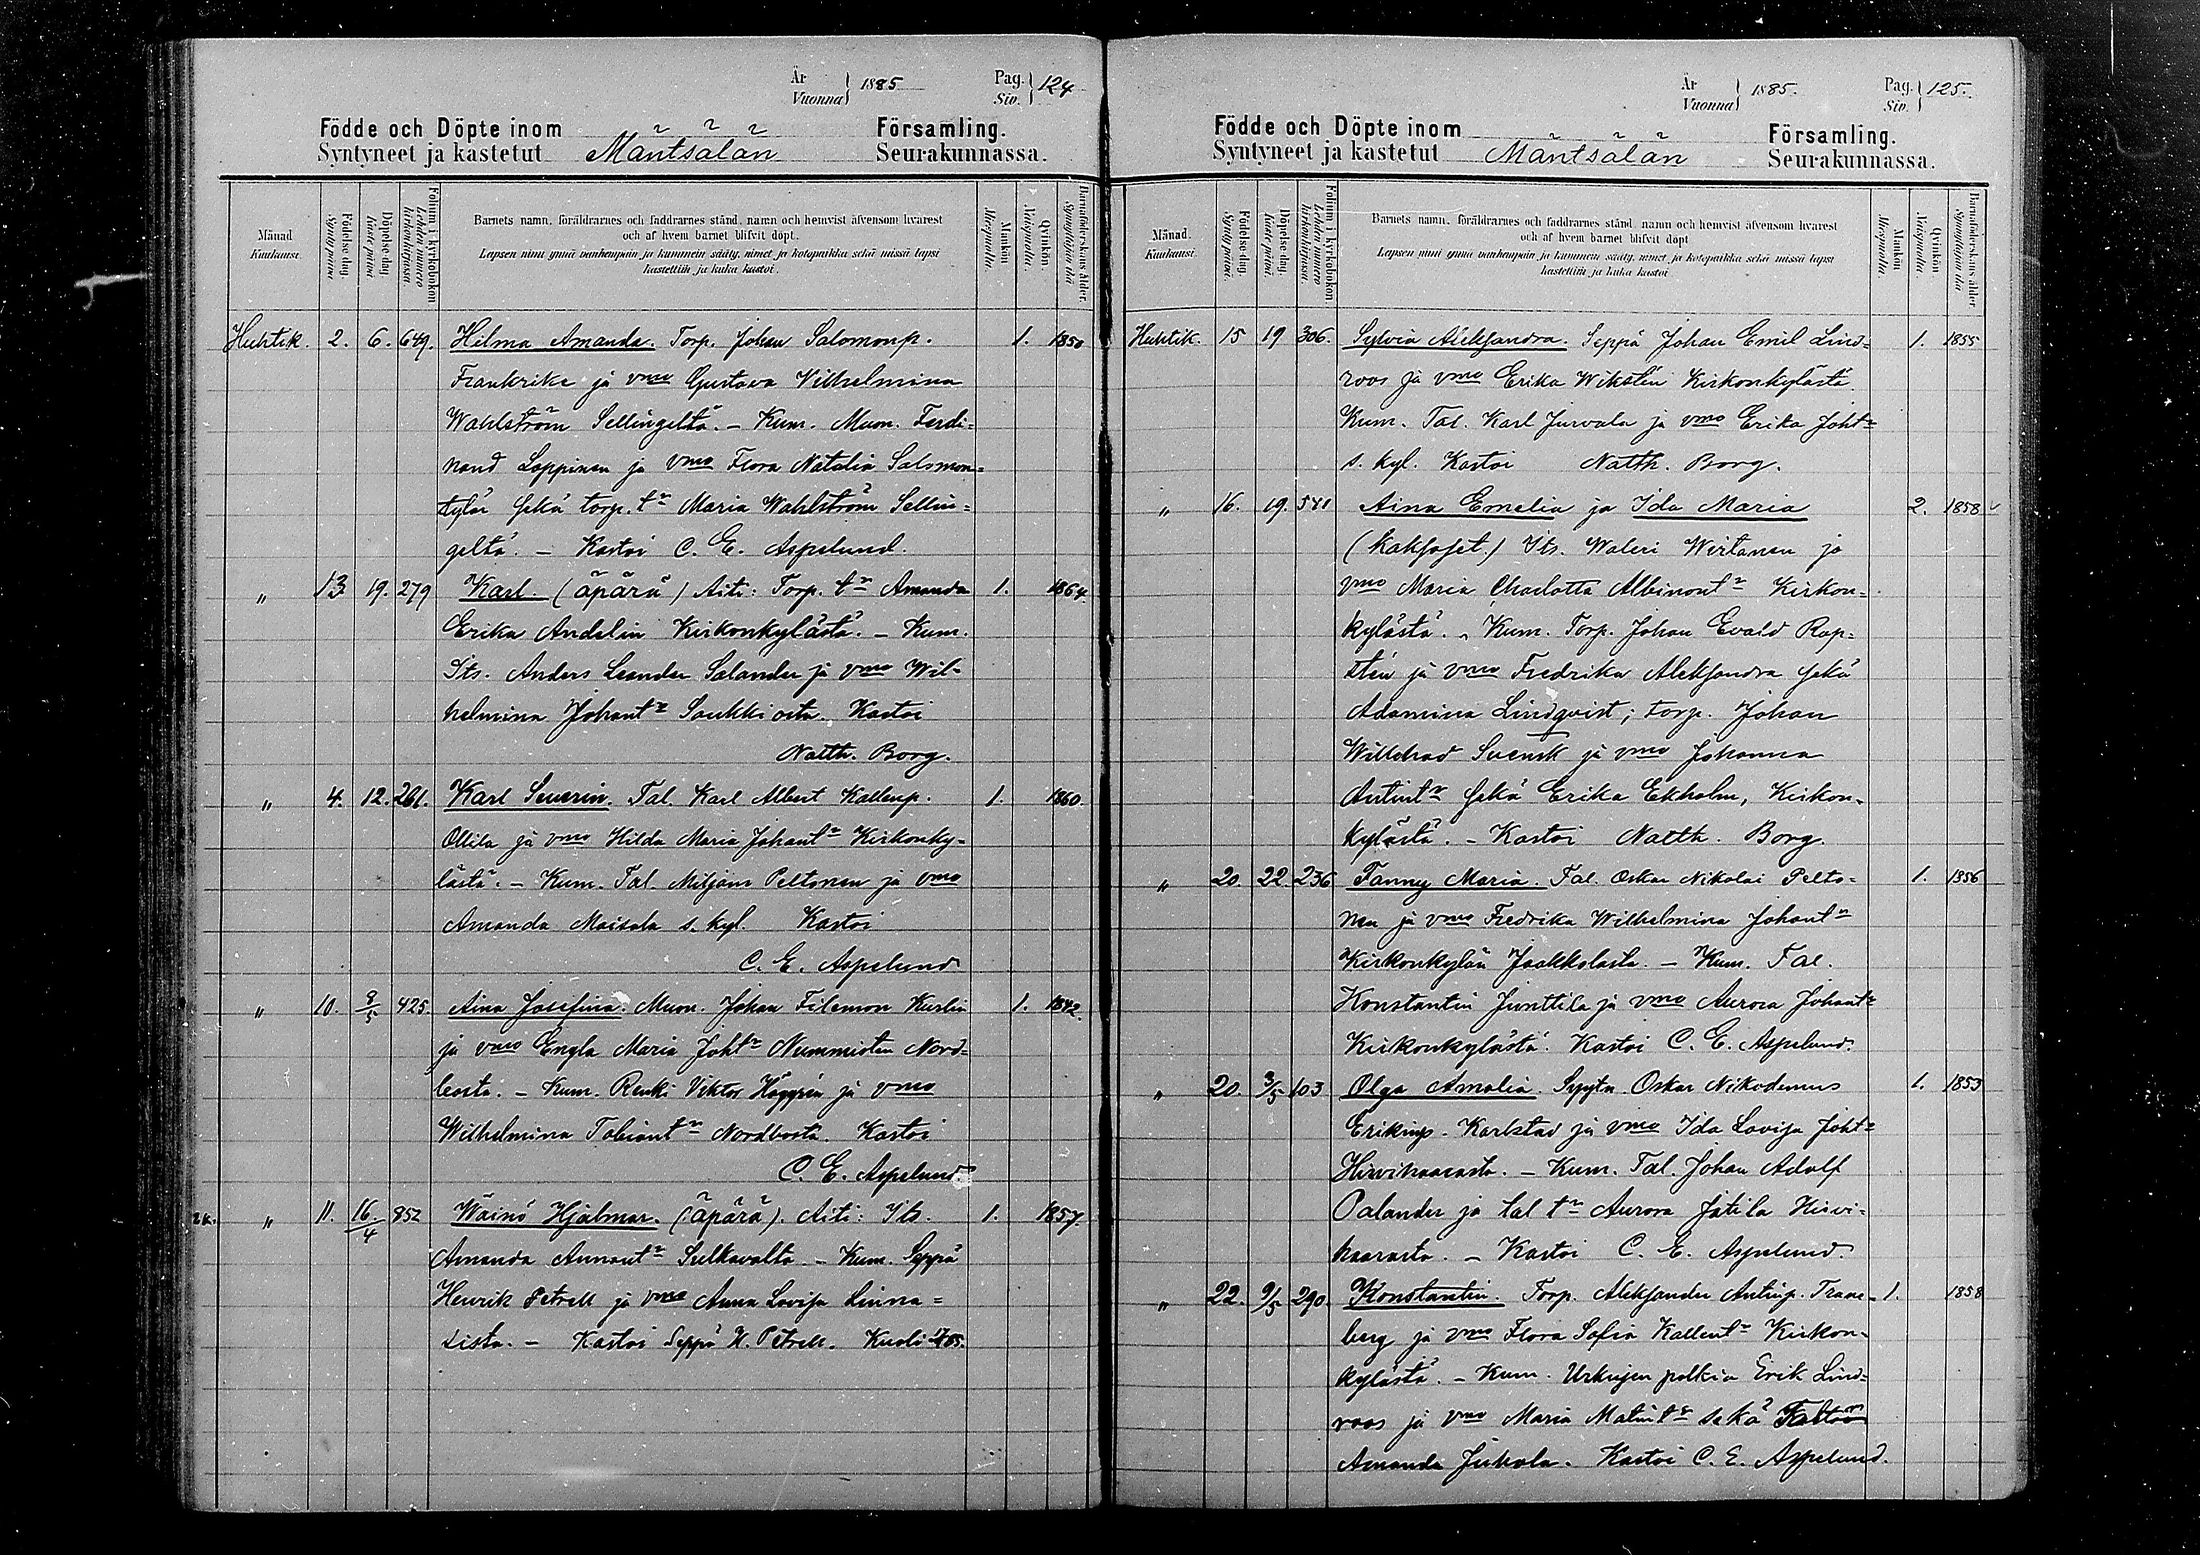 År
Vuonna } 1885
Pag.
Siv. } 124
Födde och Döpte inom Församling.
Syntyneet ja kastetut Mäntsälän Seurakunnassa.
Månad.
Kuukausi.
Födelsedag.
Syntypäivä.
Döpelsedag.
Kastepäivä.
Folium i kyrkobokon.
Lehden numero kirkonkirjassa.
Barnets namn, föräldrarnes och faddrarnes stånd, namn och hemvist äfvensom hvarest
och af hvem barnet blifvit döpt.
Lapsen nimi ynnä vanhempain ja kummein sääty, nimet ja kotopaikka sekä missä lapsi
kastettiin ja kuka kastoi.
Mankön.
Miespuolia.
Qvinkön.
Naispuolia.
Barnaföderskans ålder.
Synnyttäjän ikä
Huhtik. 2. 6. 649. Hilma Amanda. Torp. Johan Salomonp. 1. 1850
Frankrike ja vmo Gustava Vilhelmina
Wahlström Sellingeltä. – Kum. Muon. Ferdi=
nand Loppinen ja vmo Flora Natalia Salomon=
tytär sekä torp. tr Maria Wahlström Sellin=
geltä. – Kastoi C. E. Aspelund.
„ 13 19. 279 Karl. (äpärä) Äiti: Torp. tr Amanda 1. 1864.
Erika Andelin Kirkonkylästä. – Kum.
Its. Anders Leander Salander ja vmo Wil=
helmina Johant r Soukkiosta. Kastoi
Natth. Borg.
„ 4. 12. 261. Karl Severin. Tal. Karl Albert Kallenp. 1. 1860.
Ollila ja vmo Hilda Maria Johant r Kirkonky=
lästä. – Kum. Tal. Miljam Peltonen ja vmo
Amanda Maisala s. kyl. Kastoi
C. E. Aspelund
„ 10. 8/5 425. Aina Josefina. Muon. Johan Filemon Kurlin 1. 1842.
ja vmo Engla Maria Joht r Nummisten Nord=
bosta. – Kum. Renki Viktor Häggrén ja vmo
Wilhelmina Tobiant r Nordbosta. Kastoi
C. E. Aspelund
2k. „ 11. 16/4 852 Wäinö Hjalmar. (äpärä). Äiti: Its. 1. 1857.
Amanda Annant r Sulkavalta. – Kum. Seppä
Henrik Petrell ja vmo Anna Lovisa Linna=
sista. – Kastoi Seppä H. Petrell. Kuoli
År
Vuonna } 1885.
Pag.
Siv. } 125.
Födde och Döpte inom Församling.
Syntyneet ja kastetut Mäntsälän Seurakunnassa.
Månad.
Kuukausi.
Födelsedag.
Syntypäivä.
Döpelsedag.
Kastepäivä.
Folium i kyrkobokon.
Lehden numero kirkonkirjassa.
Barnets namn, föräldrarnes och faddrarnes stånd, namn och hemvist äfvensom hvarest
och af hvem barnet blifvit döpt
Lapsen nimi ynnä vanhempain ja kummein sääty, nimet ja kotopaikka sekä missä lapsi
kastettiin ja kuka kastoi
Mankön
Miespuolia.
Qvinkön
Naispuolia.
Barnaföderskans ålder.
Synnyttäjän ikä
Huhtik. 15 19 306. Sylvia Aleksandra. Seppä Johan Emil Lind= 1. 1855
roos ja vmo Erika Wikstén Kirkonkylästä
Kum. Tal. Karl Jurvala ja vmo Erika Joht r
s. kyl. Kastoi Natth. Borg.
„ 16. 19. 541 Aina Emelia ja Ida Maria 2. 1858
(kaksoset.) Its. Waleri Wirtanen ja
vmo Maria Charlotta Albinont r Kirkon=
kylästä. – Kum. Torp. Johan Evald Rap=
stén ja vmo Fredrika Aleksandra sekä
Adamina Lindqvist; torp. Johan
Willehad Svensk ja vmo Johanna
Antint r sekä Erika Ekholm, Kirkon=
kylästä. – Kastoi Natth. Borg.
„ 20. 22. 236 Fanny Maria. Tal. Oskar Nikolai Pelto= 1. 1856
nen ja vmo Fredrika Wilhelmina Johant r
Kirkonkylän Jaakkolasta. – Kum. Tal.
Konstantin Junttila ja vmo Aurora Johant r
Kirkonkylästä. Kastoi C. E. Aspelund.
„ 20. 3/5 103 Olga Amalia. Sypyta Oskar Nikodemus 1. 1853
Erikinp. Karlstad ja vmo Ida Lovisa Joht r
Hirvihaarasta. – Kum. Tal. Johan Adolf
Palander ja tal tr Aurora Jätila Hirvi=
haarasta. – Kastoi C. E. Aspelund.
„ 22. 9/5 290 Konstantin. Torp. Aleksander Antinp. Trane= 1. 1858
berg ja vmo Flora Sofia Kallent r Kirkon=
kylästä. – Kum. Urkujen polkia Erik Lind=
roos ja vmo Maria Matint r sekä
Amanda Jukola. Kastoi C. E. Aspelund.